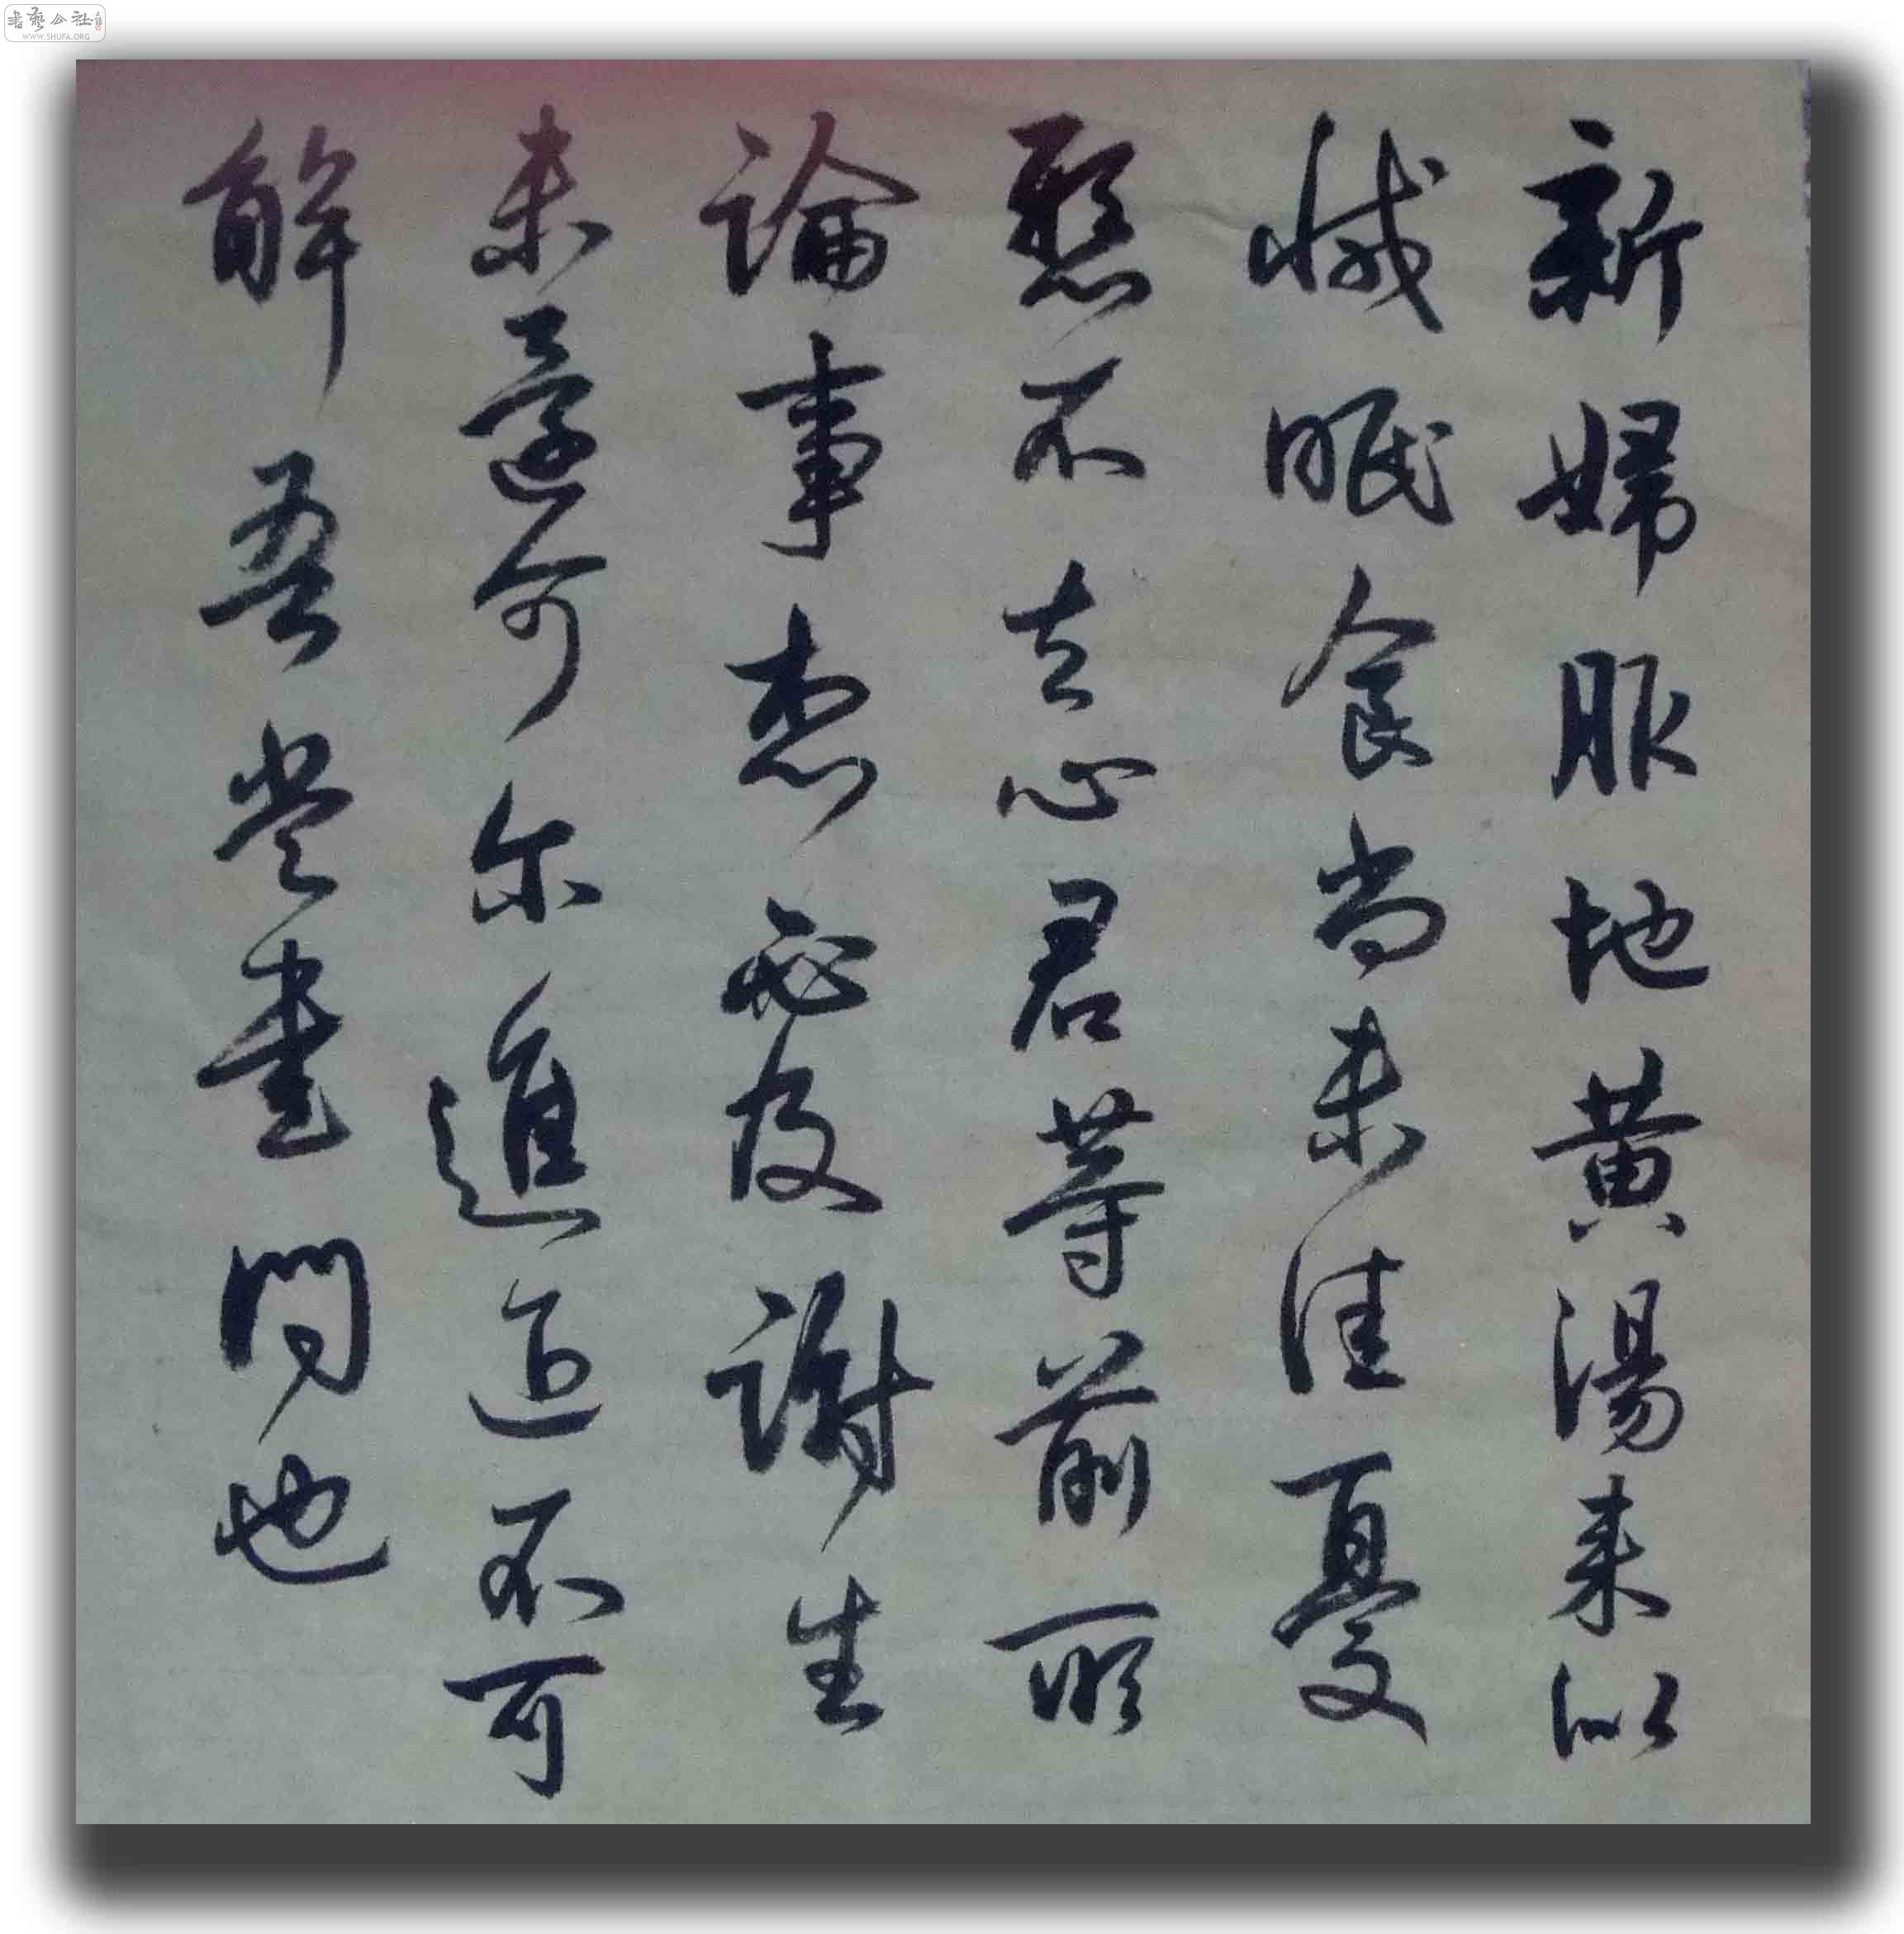 書藝公社
WWW.SHUFA.ORG
新婦服地黄湯来似
減眠食尚未佳憂
懸不去心君等前所
論事想必及謝生
未還可尔進退不可
解吾當書問也